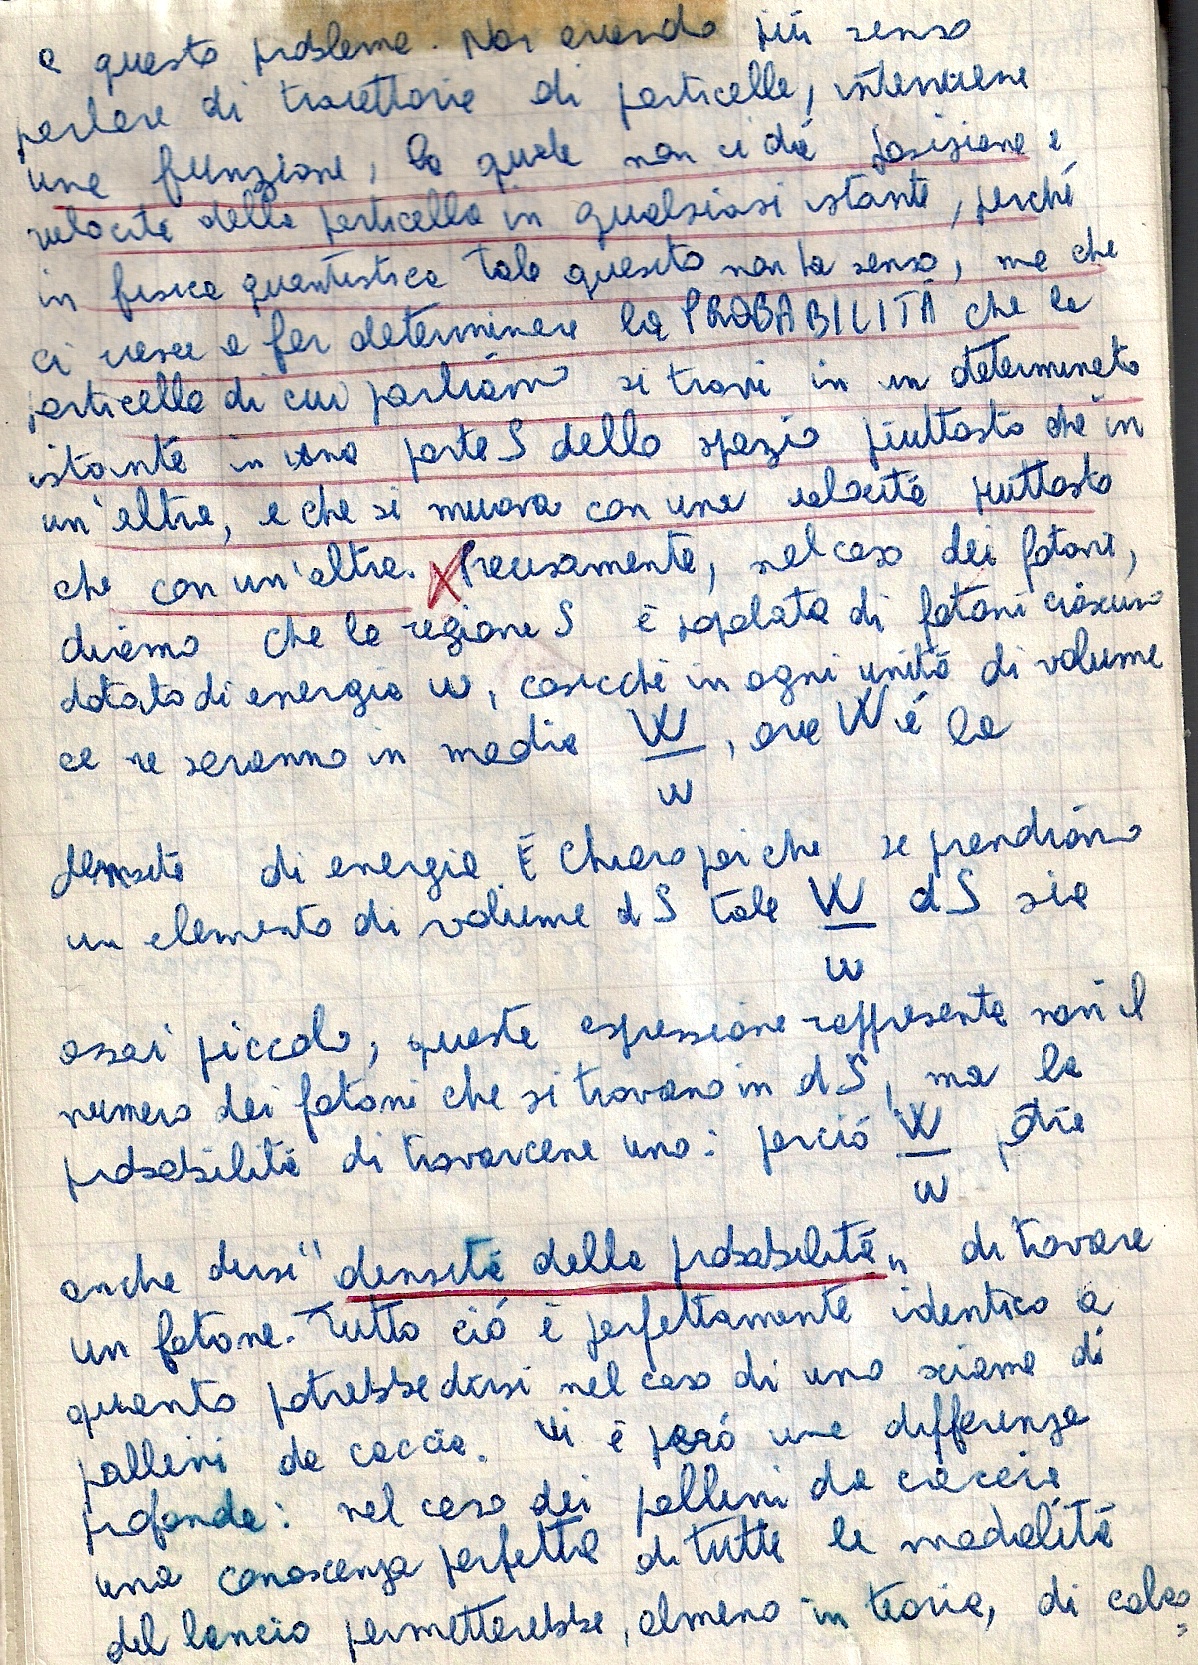 a questo problema. Non avendo più senso
parlare di traiettorie di particelle, interviene
una funzione, la quale non ci dà posizione e
velocità della particella in qualsiasi istante, perché
in fisica quantistica tale quesito non ha senso, ma che
ci riesce a far determinare la PROBABILITÀ che la
particella di cui parliamo si trovi in un determinato
istante in una parte S dello spazio piuttosto che in
un'altra, e che si muova con una velocità piuttosto
che con un'altra. X Precisamente, nel caso dei fotoni,
diremo che la regione S è popolata di fotoni ciascuno
dotato di energia w, cosicché in ogni unità di volume
ce ne saranno in media W/w, ove W è la
densità di energia. È chiaro poi che se prendiamo
un elemento di volume dS tale W/w dS sia
assai piccolo, questa espressione rappresenta non il
numero dei fotoni che si trovano in dS, ma la
probabilità di trovarcene uno: perciò W/w potrà
anche dirsi "densità della probabilità" di trovare
un fotone. Tutto ciò è perfettamente identico a
quanto potrebbe dirsi nel caso di uno sciame di
pallini da caccia. Vi è però una differenza
profonda: nel caso dei pallini da caccia
una conoscenza perfetta di tutte le modalità
del lancio permetterebbe, almeno in teoria, di calco=